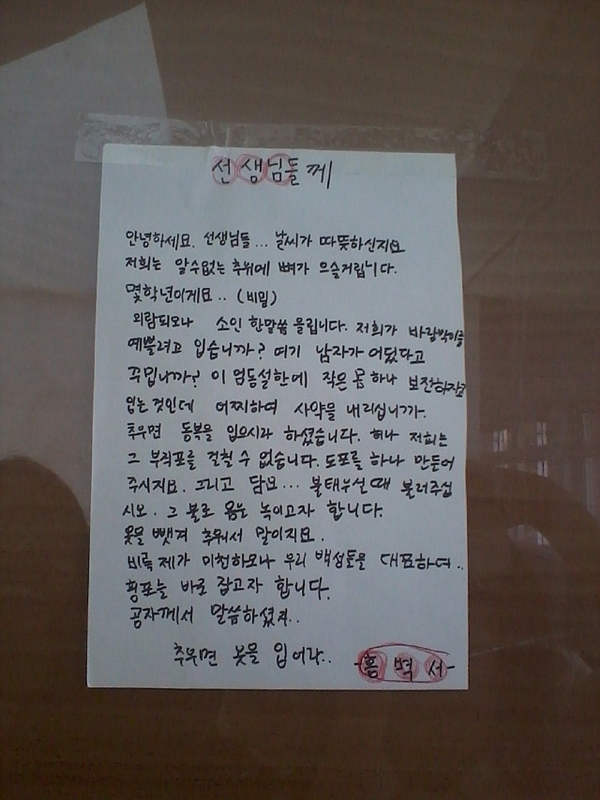 선생님들께
안녕하세요. 선생님들... 날씨가 따뜻하신지요
저희는 알수없는 추위에 뼈가 으슬거립니다.
몇학년이게요.. (비밀)
외람되오나 소인 한말씀 올립니다. 저희가 바람막이를
예쁠려고 입습니까? 여기 남자가 어딨다고
꾸밉니까? 이 엄동설한에 작은 몸 하나 보전하자고
입는것인데 어찌하여 사약을 내리십니까.
추우면 동복을 입으시라 하셨습니다. 허나 저희는
그 부직포를 걸칠 수 없습니다. 도포를 하나 만들어
주시지요. 그리고 담요... 불태우실 때 불러주십
시오. 그 불로 몸을 녹이고자 합니다.
옷을 뺏겨 추워서 말이지요.
비록 제가 미천하오나 우리 백성들을 대표하여..
횡포를 바로 잡고자 합니다.
공자께서 말씀하셨죠..
추우면 옷을 입어라..
-홍벽서-